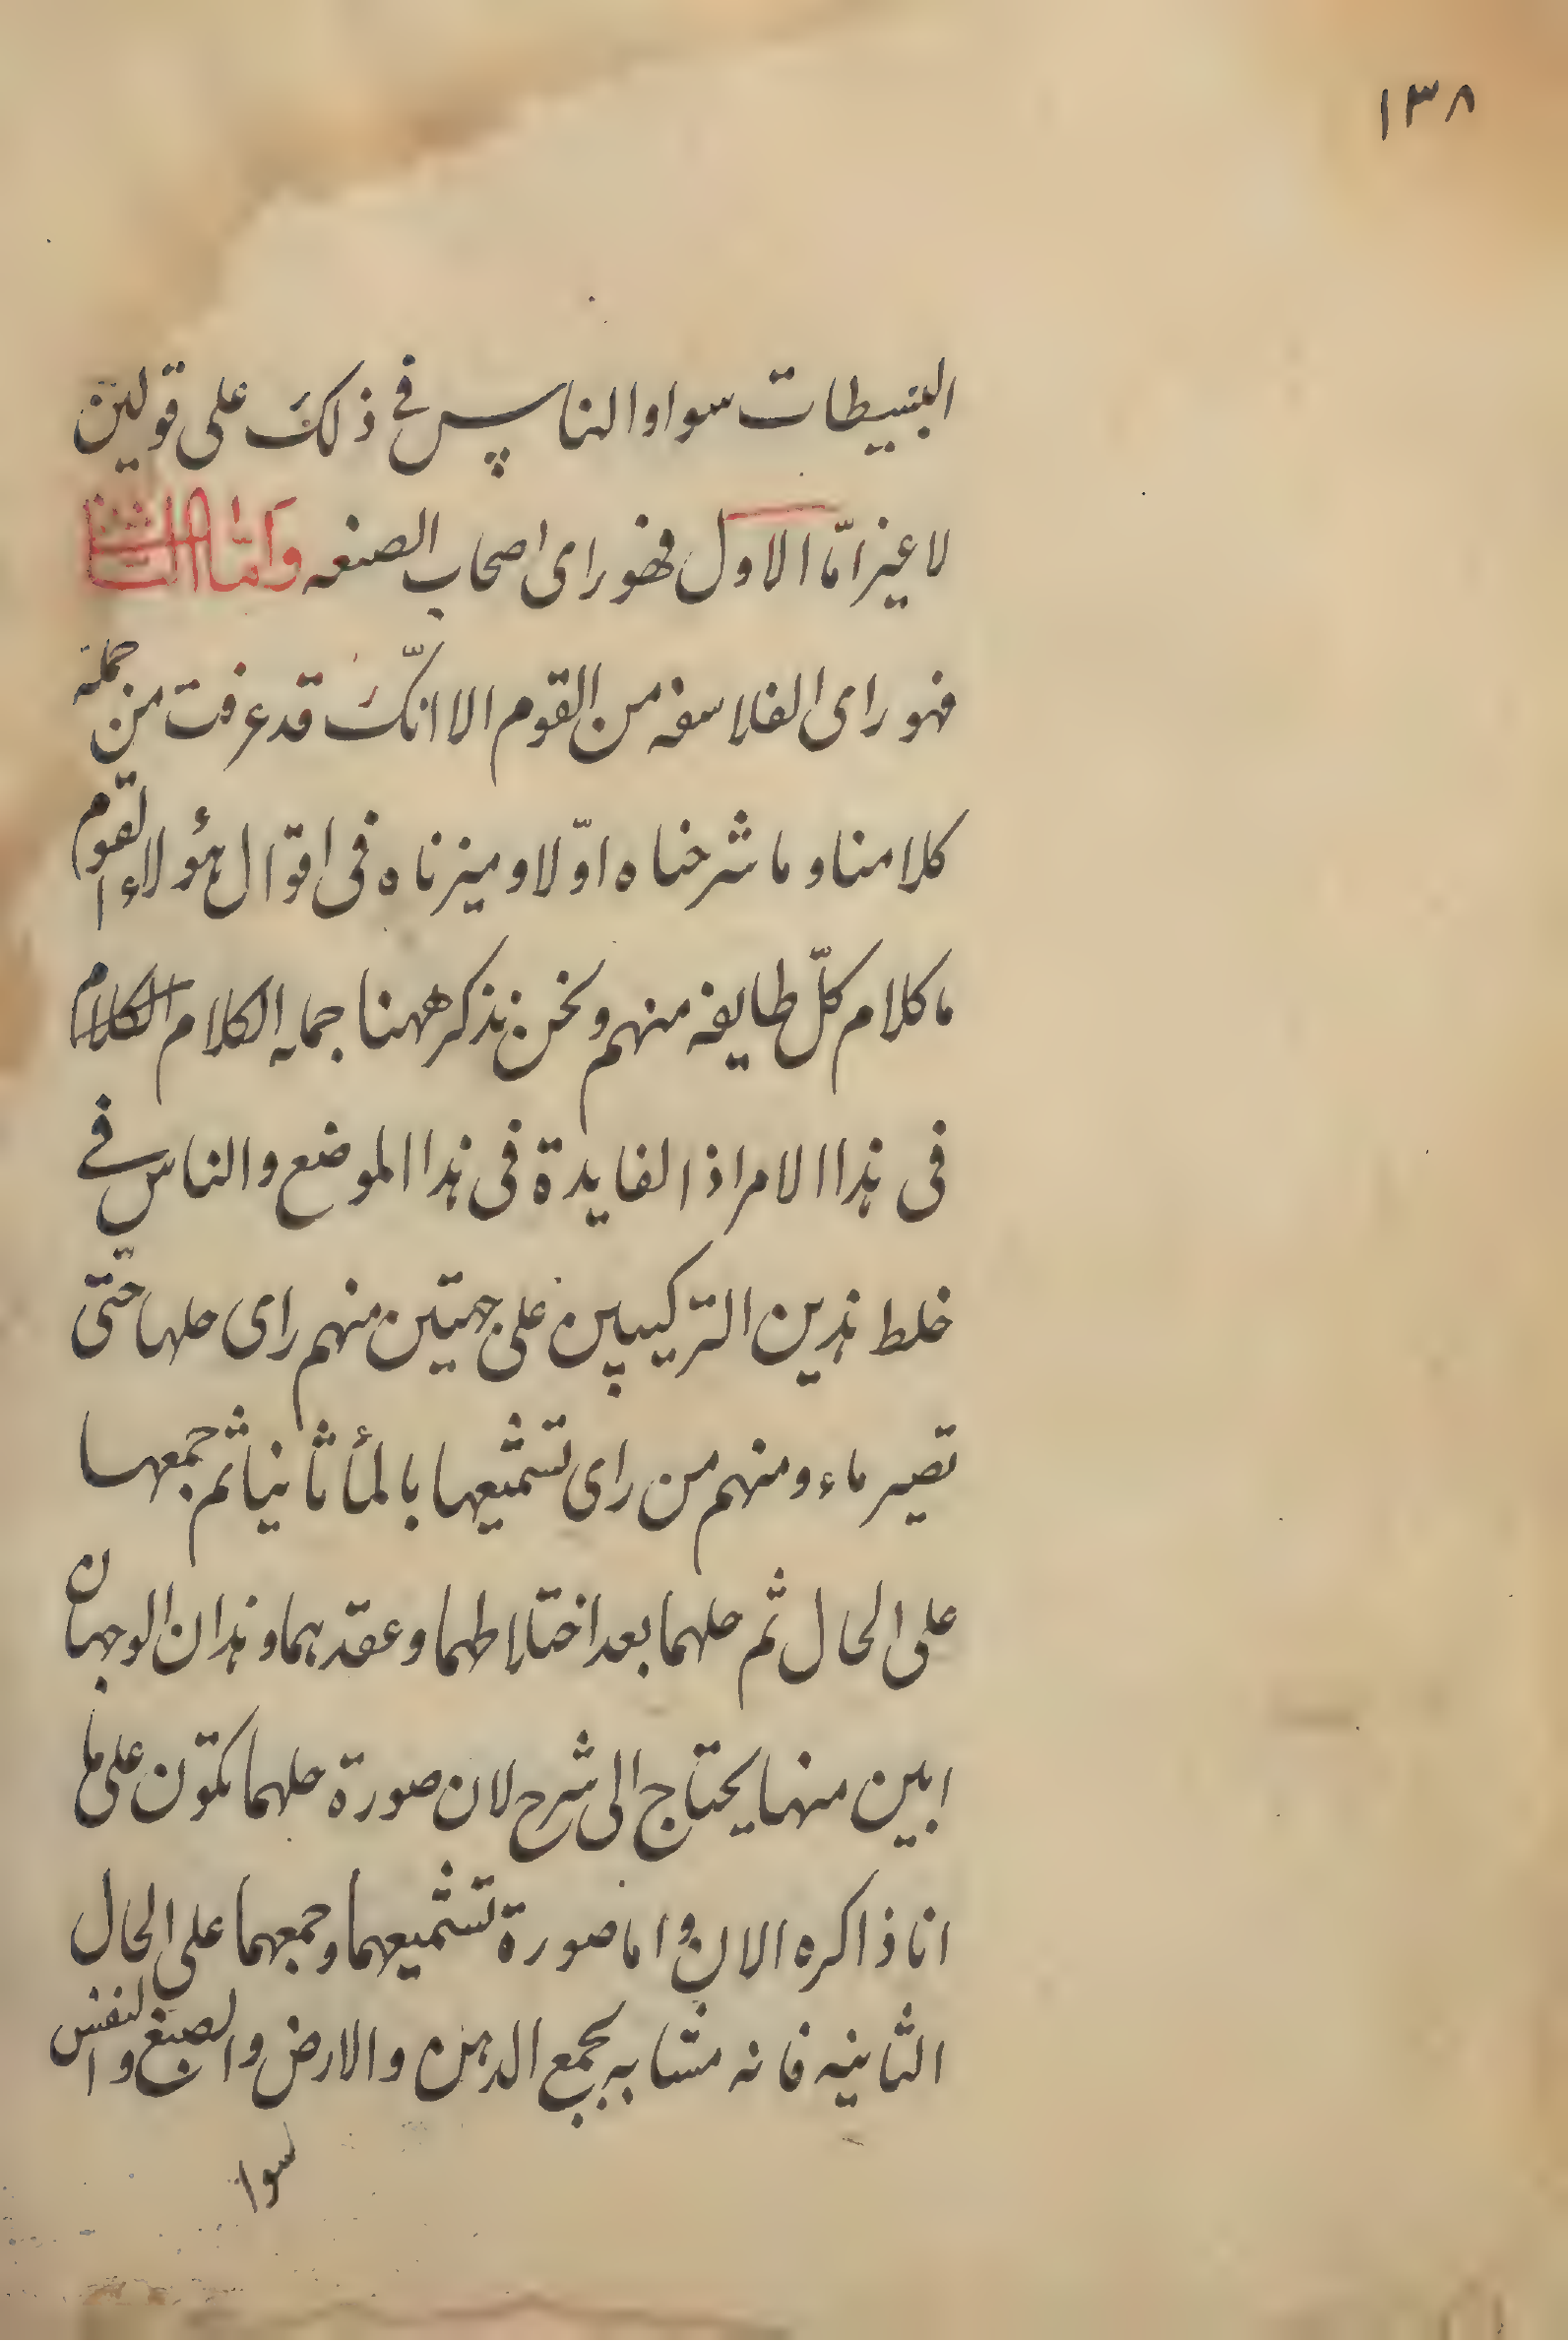 ١٣٨
البسيطات سوا والناس في ذلك على قولين
لا غير امّا الاول فهو راى اصحاب الصنعه وَامّا الثانى
فهو راى الفلاسفه من القوم الا انّك قد عرفت من جمله
كلامنا و ما شرحناه اوّلا و ميزناه فى اقوال هؤلاء القوم
ما كلام كلّ طايفه منهم و نحن نذكر ههنا جمله الكلام الكلام
فى هذا الامر اذ الفايدة فى هذا الموضع والناس في
خلط هذين التركيبين على جهتين منهم راى حلها حتّى
تصير ماء و منهم من راى تشميعها بالمأ ثانيا ثم جمعها
على الحال ثم حلهما بعد اختلاطهما و عقدهما و هذان الوجهان
ابين منها يحتاج الى شرح لان صورة حلهما تكون على ما
انا ذاكره الان و اما صورة تشميعهما و جمعهما على الحال
الثانيه فانه مشابه بجمع الدهن والارض والصبغ والنفس
سوا